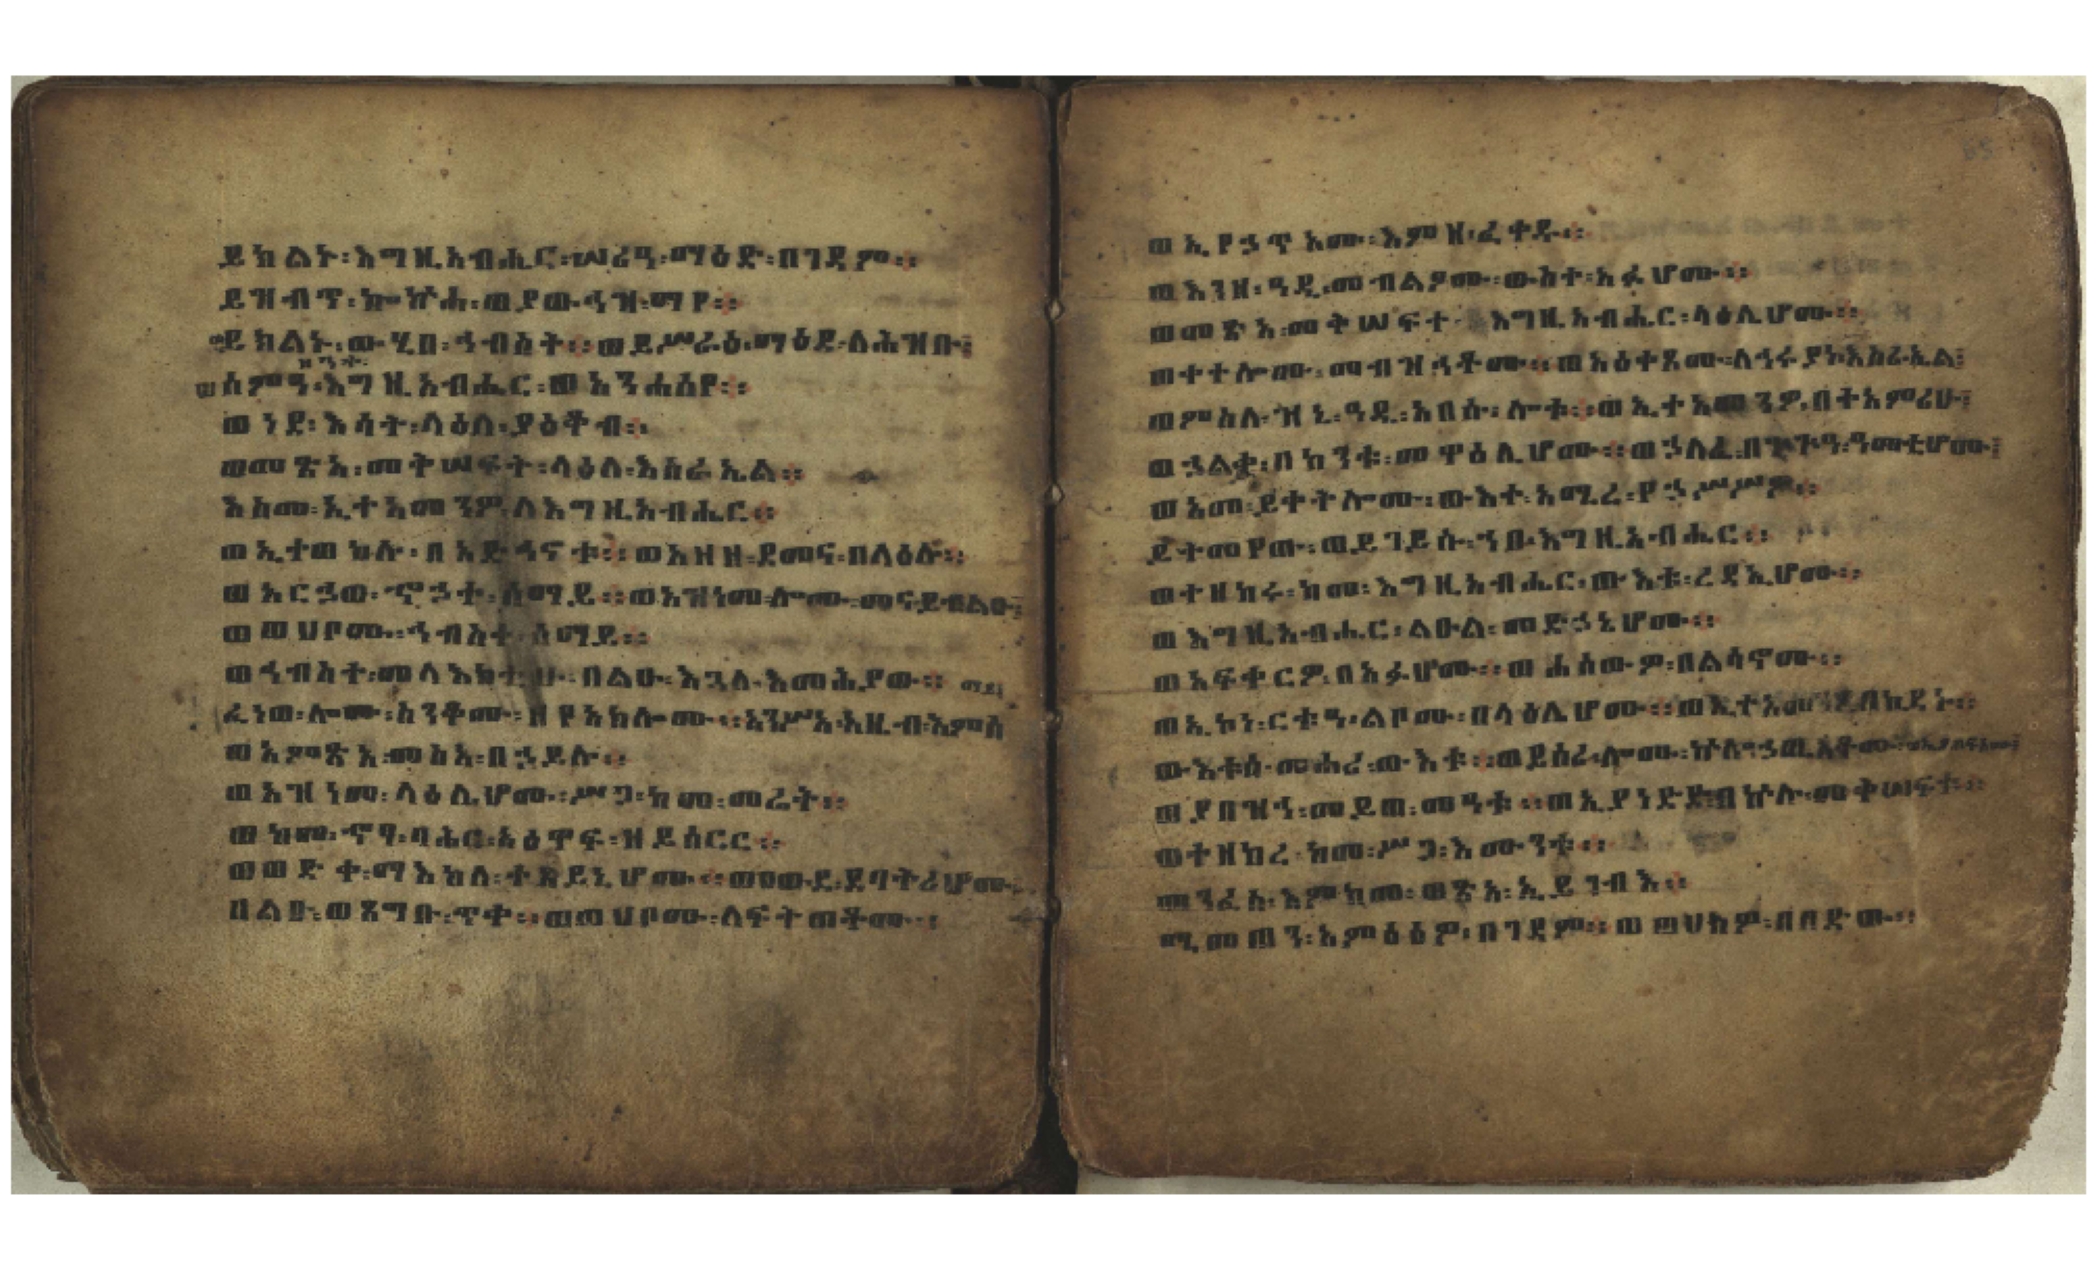 ይክልኑ፡እግዚአብሔር፡ሠሪዓ፡ማዕድ፡በገዳም።
ይዝብጥ፡ኰኵሐ፡ወያውኅዝ፡ማየ።
ይክልኑ፡ውሂበ፡ኅብስት።ወይሥራዕ፡ማዕደ፡ለሕዝቡ፤
ዘንተ፡
ሰምዓ፡እግዚአብሔር፡ወአንሐሰየ።
ወነደ፡እሳት፡ላዕለ፡ያዕቆብ።
ወመጽአ፡መቅሠፍት፡ላዕለ፡እስራኤል።
እስመ፡ኢተአመንዎ፡ለእግዚአብሔር።
ወኢተወከሉ፡በአድኅኖቱ።ወአዘዘ፡ደመና፡በላዕሉ።
ወአርኃወ፡ኆኃተ፡ሰማይ።ወአዝነመ፡ሎሙ፡መና፡ይብልዑ፤
ወወሀቦሙ፡ኅብስተ፡ሰማይ።
ወኅብስተ፡መላእክቲሁ፡በልዑ፡እጓለ፡እመሕያው።
ፈነወ፡ሎሙ፡ስንቆሙ፡ዘየአክሎሙ።አንሥአ፡አዜብ፡እምሰ
ወአምጽአ፡መስአ፡በኃይሉ።
ወአዝነመ፡ላዕሌሆሙ፡ሥጋ፡ከመ፡መሬት።
ወከመ፡ኆፃ፡ባሕር፡አዕዋፍ፡ዘይሰርር።
ወወድቀ፡ማእከለ፡ተዓይኒሆሙ።ወዐውደ፡ደባትሪሆሙ።
በልዑ፡ወጸግቡ፡ጥቀ።ወወሀቦሙ፡ለፍትወቶሙ።
ወኢየኃጥአሙ፡እምዘ፡ፈቀዱ።
ወእንዘ፡ዓዲ፡መብልዖሙ፡ውስተ፡አፉሆሙ።
ወመጽአ፡መቅሠፍተ፡እግዚአብሔር፡ላዕሌሆሙ።
ወቀተሎሙ፡ማብዝኅቶሙ።ወአዕቀጾሙ፡ለኅሩያነ፡እስራኤል፤
ወምስለ፡ዝኒ፡ዓዲ፡አበሱ፡ሎቱ።ወኢተአመንዎ፡በተአምሪሁ፤
ወኃልቀ፡በከንቱ፡መዋዕሊሆሙ።ወኃለፈ፡በጕጕዓ፡ዓመቲሆሙ፤
ወአመ፡ይቀትሎሙ፡ውእተ፡አሚረ፡የኃሥሥዎ።
ይትመየጡ፡ወይገይሱ፡ኀበ፡እግዚአብሔር።
ወተዘከሩ፡ከመ፡እግዚአብሔር፡ውእቱ፡ረዳኢሆሙ።
ወእግዚአብሔር፡ልዑል፡መድኃኒሆሙ።
ወአፍቀርዎ፡በአፉሆሙ።ወሐሰውዎ፡በልሳኖሙ።
ወኢኮነ፡ርቱዓ፡ልቦሙ፡በላዕሌሆሙ።ወኢተአመንዎ፡በኪዳኑ።
ውእቱሰ፡መሐሪ፡ውእቱ።ወይሰሪ፡ሎሙ፡ኵሎ፡ኃጢአቶሙ፡
ወያበዝኅ፡መይጠ፡መዓቱ።ወኢያነድድ፡በኵሉ፡መቅሠፍቱ።
ወተዘከረ፡ከመ፡ሥጋ፡እሙንቱ።
መንፈስ፡እምከመ፡ወጽአ፡ኢይገብእ።
ሚመጠን፡አምዕዕዎ፡በገዳም።ወወህክዎ፡በበድው።